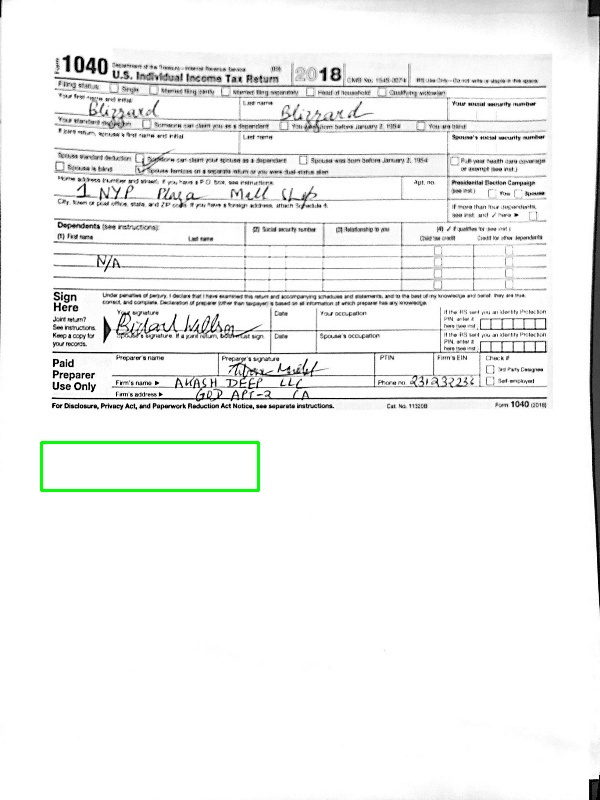 Form 1040 Department of the Treasury—Internal Revenue Service (99) U.S. Individual Income Tax Return 2018 OMB No. 1545-0074 IRS Use Only—Do not write or staple in this space.
Filing status: Single Married filing jointly Married filing separately Head of household Qualifying widow(er)
Your first name and initial Last name Your social security number
Blizzard Blizzard
Your standard deduction Someone can claim you as a dependent You were born before January 2, 1954 You are blind
If joint return, spouse's first name and initial Last name Spouse's social security number
Spouse standard deduction: Someone can claim your spouse as a dependent Spouse was born before January 2, 1954 Full-year health care coverage or exempt (see inst.)
Spouse is blind Spouse itemizes on a separate return or you were dual-status alien
Home address (number and street). If you have a P.O. box, see instructions. Apt. no. Presidential Election Campaign (see inst.) You Spouse
1 NYP Plaza Mall Shop
City, town or post office, state, and ZIP code. If you have a foreign address, attach Schedule 6. If more than four dependents, see inst. and ✓ here ▶
Dependents (see instructions): (2) Social security number (3) Relationship to you (4) ✓ if qualifies for (see inst.):
(1) First name Last name Child tax credit Credit for other dependents
N/A
Sign Here
Joint return? See instructions. Keep a copy for your records.
Under penalties of perjury, I declare that I have examined this return and accompanying schedules and statements, and to the best of my knowledge and belief, they are true, correct, and complete. Declaration of preparer (other than taxpayer) is based on all information of which preparer has any knowledge.
Your signature Date Your occupation If the IRS sent you an Identity Protection PIN, enter it here (see inst.)
Spouse's signature. If a joint return, both must sign. Date Spouse's occupation If the IRS sent you an Identity Protection PIN, enter it here (see inst.)
Paid Preparer Use Only
Preparer's name Preparer's signature PTIN Firm's EIN Check if:
3rd Party Designee
Self-employed
Firm's name ▶ AKASH DEEP LLC Phone no. 231232236
Firm's address ▶ GOD APT-2 CA
For Disclosure, Privacy Act, and Paperwork Reduction Act Notice, see separate instructions. Cat. No. 11320B Form 1040 (2018)